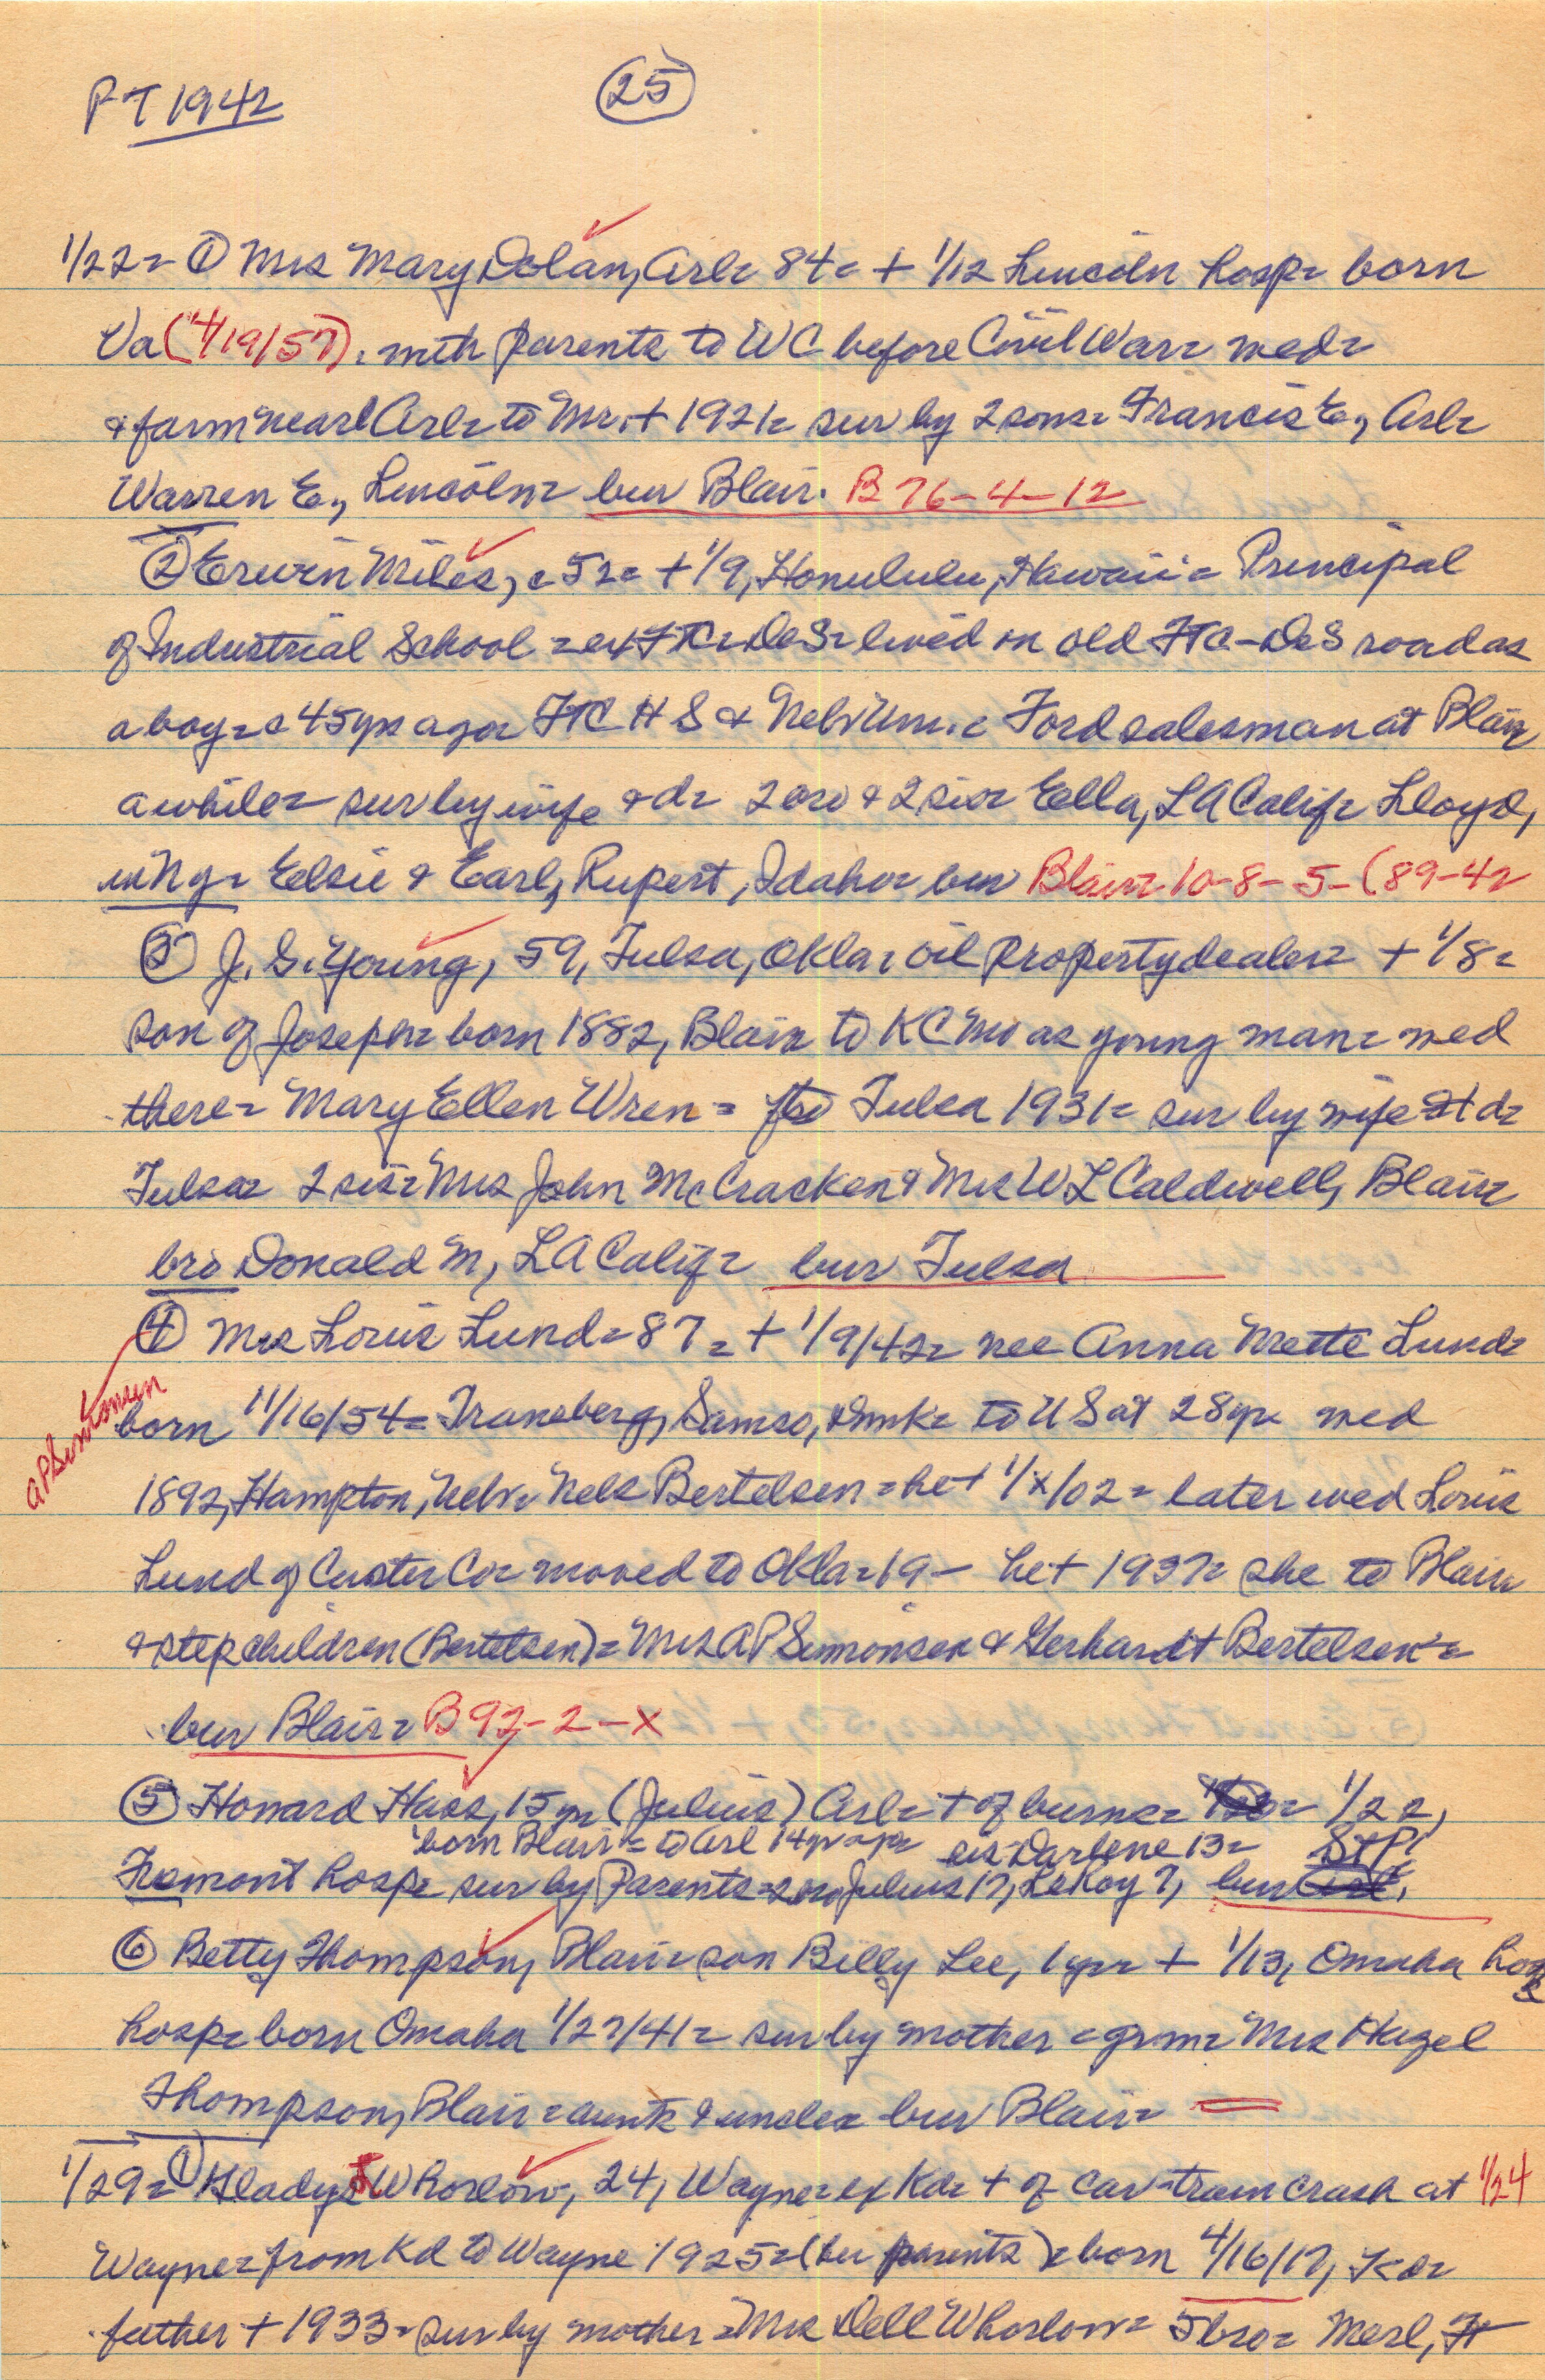 PT 1942 (25)
1/22= ① Mrs Mary Dolan, Arl= 84= + 1/12 Lincoln hosp= born
Va (4/19/57). with parents to WC before Civil War= wed=
& farm near Arl= to Mr. + 1921= sur by 2 sons= Francis E., Arl=
Warren E., Lincoln= bur Blair. B 76-4-12
② Erwin Miles, c 52= + 1/9, Honululu, Hawaii= Principal
of Industrial School = ex FTC= DeS= lived on old FTC-DeS road as
a boy= c 45 yrs ago= FTC H S & Neb Uni.= Ford salesman at Blair
awhile= sur by wife & d= 2 bro & 2 sis= Ella, LA Calif= Lloyd,
Elsie & Earl, Rupert, Idaho= bur Blair= 10-8-5-(89-42
③ J. S. Young, 59, Tulsa, Okla= oil property dealer= + 1/8=
son of Joseph= born 1882, Blair= to KC Mo as young man= wed
there= Mary Ellen Wren= to Tulsa 1931= sur by wife & d=
Tulsa= 2 sis= Mrs John McCracken & Mrs W L Caldwell, Blair=
bro Donald M, LA Calif= bur Tulsa
④ Mrs Louis Lund= 87= + 1/9/42= nee Anna Mette Lund=
AP Simonsen
born 11/16/54= Traneberg, Samso, Dmk= to US at 28 yr wed
1892, Hampton, Neb= Nels Bertelsen= he + 1/x/02= later wed Louis
Lund of Custer Co= moved to Okla= 19- he + 1937= she to Blair=
& stepchildren (Bertelsen)= Mrs AP Simonsen & Gerhardt Bertelsen=
bur Blair= B 92-2-X
⑤ Howard Haas, 15 yr (Julius) Arl= + of burns= 1/22,
born Blair= to Arl 14 yr ago sis Darlene 13= St P.
Fremont hosp= sur by Parents= 2 bro Julius 17, LeRoy 7, bur
⑥ Betty Thompson, Blair= son Billy Lee, 1 yr= + 1/13, Omaha hosp
hosp= born Omaha 1/27/41= sur by mother = grm= Mrs Hazel
Thompson, Blair= aunts & uncles bur Blair=
1/29= ① Gladys Whorlow, 24, Wayne= ex Kd= + of car-train crash at 1/24
Wayne= from Kd to Wayne 1925= (her parents)= born 4/16/17, Kd=
father + 1933= sur by mother= Mrs Dell Whorlow= 5 bro= Merl, Ft